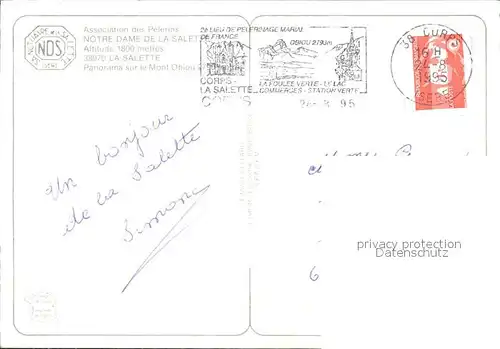 SANCTUAIRE N.D. LA SALETTE
NDS
ISERE
Association des Pèlerins
NOTRE DAME DE LA SALETTE
Altitude 1800 mètres
38970 LA SALETTE
Panorama sur le Mont Obiou
2e LIEU DE PELERINAGE MARIAL
DE FRANCE
OBIOU 2793m
CORPS-
LA SALETTE
LA FOULEE VERTE - LE LAC
COMMERCES - STATION VERTE
CORPS
26-8 95
38 CORPS
16H
24-8
1995
ISERE
Un bonjour
de la Salette
Simone
privacy protection
Datenschutz